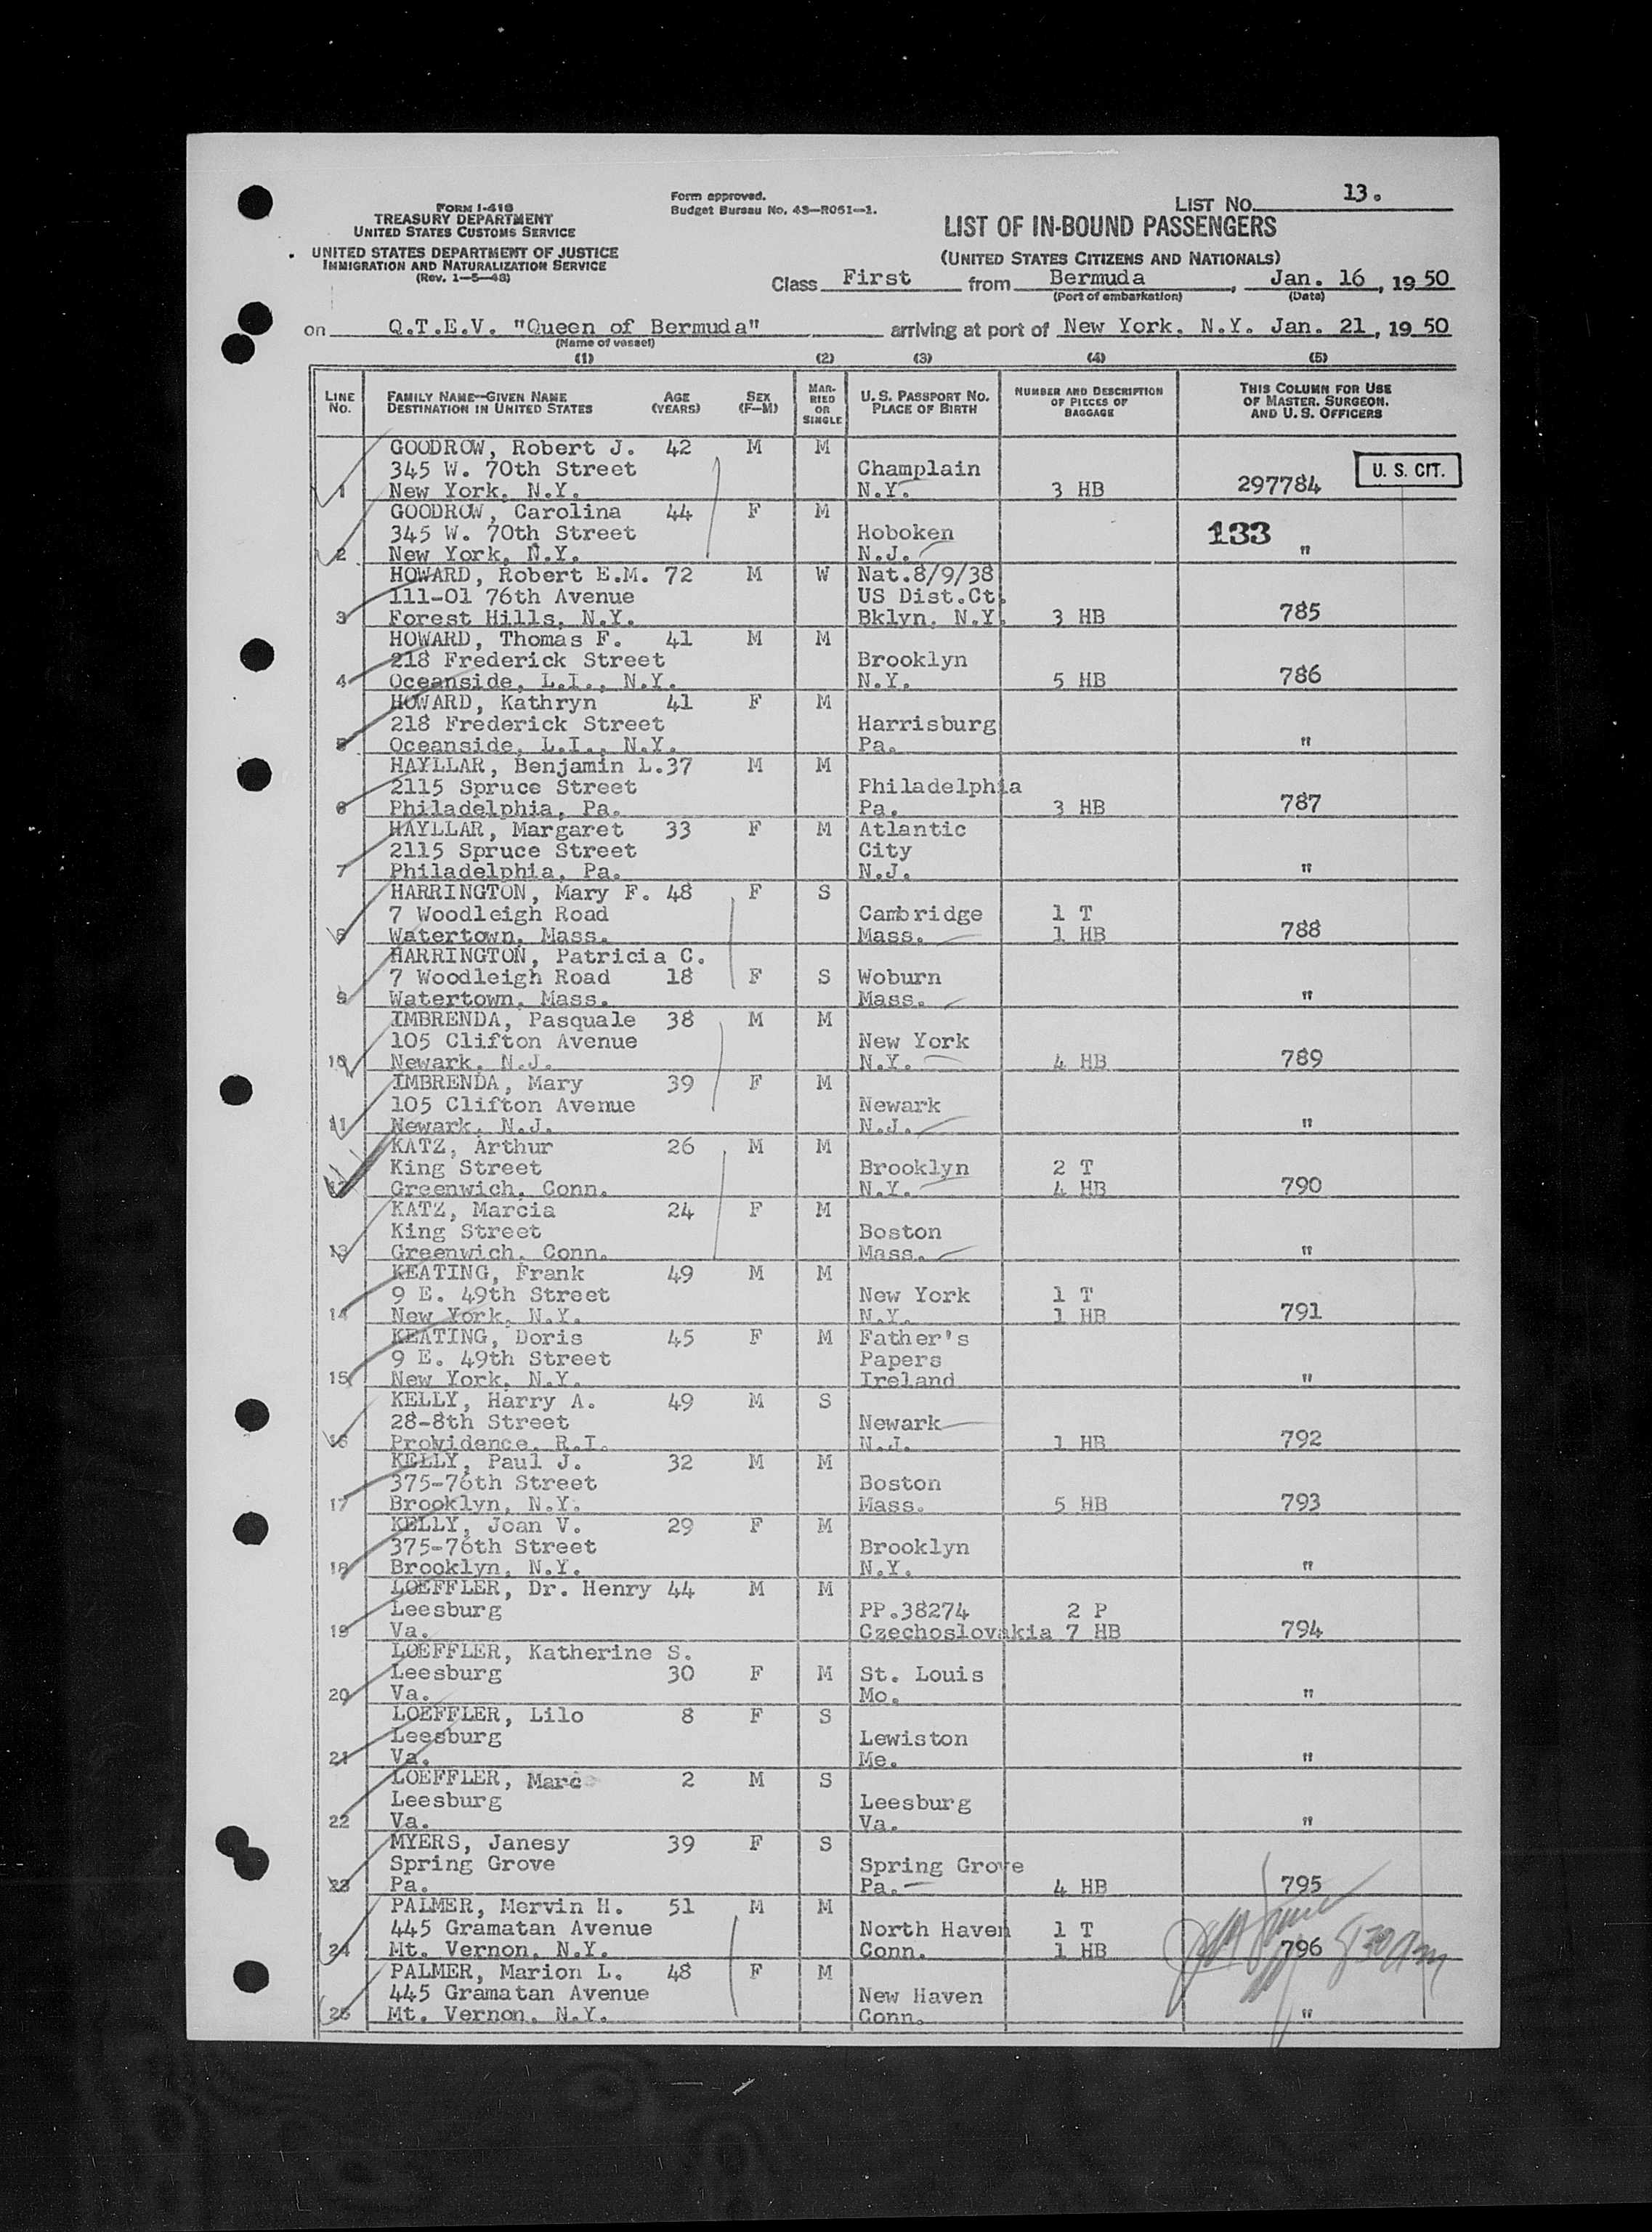 FORM I-418
TREASURY DEPARTMENT
UNITED STATES CUSTOMS SERVICE
UNITED STATES DEPARTMENT OF JUSTICE
IMMIGRATION AND NATURALIZATION SERVICE
(Rev. 1-5-48)
Form approved.
Budget Bureau No. 43-R051-1.
LIST No. 13.
LIST OF IN-BOUND PASSENGERS
(UNITED STATES CITIZENS AND NATIONALS)
Class First from Bermuda, Jan. 16, 1950
(Port of embarkation) (Date)
on Q.T.E.V. "Queen of Bermuda" arriving at port of New York, N.Y. Jan. 21, 1950
(Name of vessel)
(1) (2) (3) (4) (5)
LINE No. FAMILY NAME-GIVEN NAME DESTINATION IN UNITED STATES AGE (YEARS) SEX (F-M) MARRIED OR SINGLE U. S. PASSPORT NO. PLACE OF BIRTH NUMBER AND DESCRIPTION OF PIECES OF BAGGAGE THIS COLUMN FOR USE OF MASTER, SURGEON, AND U. S. OFFICERS
GOODROW, Robert J. 42 M M
345 W. 70th Street Champlain U. S. CIT.
1 New York, N.Y. N.Y. 3 HB 297784
GOODROW, Carolina 44 F M
345 W. 70th Street Hoboken 133
2 New York, N.Y. N.J. "
HOWARD, Robert E.M. 72 M W Nat.8/9/38
111-01 76th Avenue US Dist.Ct.
3 Forest Hills, N.Y. Bklyn. N.Y. 3 HB 785
HOWARD, Thomas F. 41 M M
218 Frederick Street Brooklyn
4 Oceanside, L.I., N.Y. N.Y. 5 HB 786
HOWARD, Kathryn 41 F M
218 Frederick Street Harrisburg
5 Oceanside, L.I., N.Y. Pa. "
HAYLLAR, Benjamin L. 37 M M
2115 Spruce Street Philadelphia
6 Philadelphia, Pa. Pa. 3 HB 787
HAYLLAR, Margaret 33 F M Atlantic
2115 Spruce Street City
7 Philadelphia, Pa. N.J. "
HARRINGTON, Mary F. 48 F S
7 Woodleigh Road Cambridge 1 T
8 Watertown, Mass. Mass. 1 HB 788
HARRINGTON, Patricia C.
7 Woodleigh Road 18 F S Woburn
9 Watertown, Mass. Mass. "
IMBRENDA, Pasquale 38 M M
105 Clifton Avenue New York
10 Newark, N.J. N.Y. 4 HB 789
IMBRENDA, Mary 39 F M
105 Clifton Avenue Newark
11 Newark, N.J. N.J. "
KATZ, Arthur 26 M M
King Street Brooklyn 2 T
12 Greenwich, Conn. N.Y. 4 HB 790
KATZ, Marcia 24 F M
King Street Boston
13 Greenwich, Conn. Mass. "
KEATING, Frank 49 M M
9 E. 49th Street New York 1 T
14 New York, N.Y. N.Y. 1 HB 791
KEATING, Doris 45 F M Father's
9 E. 49th Street Papers
15 New York, N.Y. Ireland "
KELLY, Harry A. 49 M S
28-8th Street Newark
16 Providence, R.I. N.J. 1 HB 792
KELLY, Paul J. 32 M M
375-76th Street Boston
17 Brooklyn, N.Y. Mass. 5 HB 793
KELLY, Joan V. 29 F M
375-76th Street Brooklyn
18 Brooklyn, N.Y. N.Y. "
LOEFFLER, Dr. Henry 44 M M
Leesburg PP.38274 2 P
19 Va. Czechoslovakia 7 HB 794
LOEFFLER, Katherine S.
Leesburg 30 F M St. Louis
20 Va. Mo. "
LOEFFLER, Lilo 8 F S
Leesburg Lewiston
21 Va. Me. "
LOEFFLER, Marc 2 M S
Leesburg Leesburg
22 Va. Va. "
MYERS, Janesy 39 F S
Spring Grove Spring Grove
23 Pa. Pa. 4 HB 795
PALMER, Mervin H. 51 M M
445 Gramatan Avenue North Haven 1 T
24 Mt. Vernon, N.Y. Conn. 1 HB 796
PALMER, Marion L. 48 F M
445 Gramatan Avenue New Haven
25 Mt. Vernon, N.Y. Conn. "